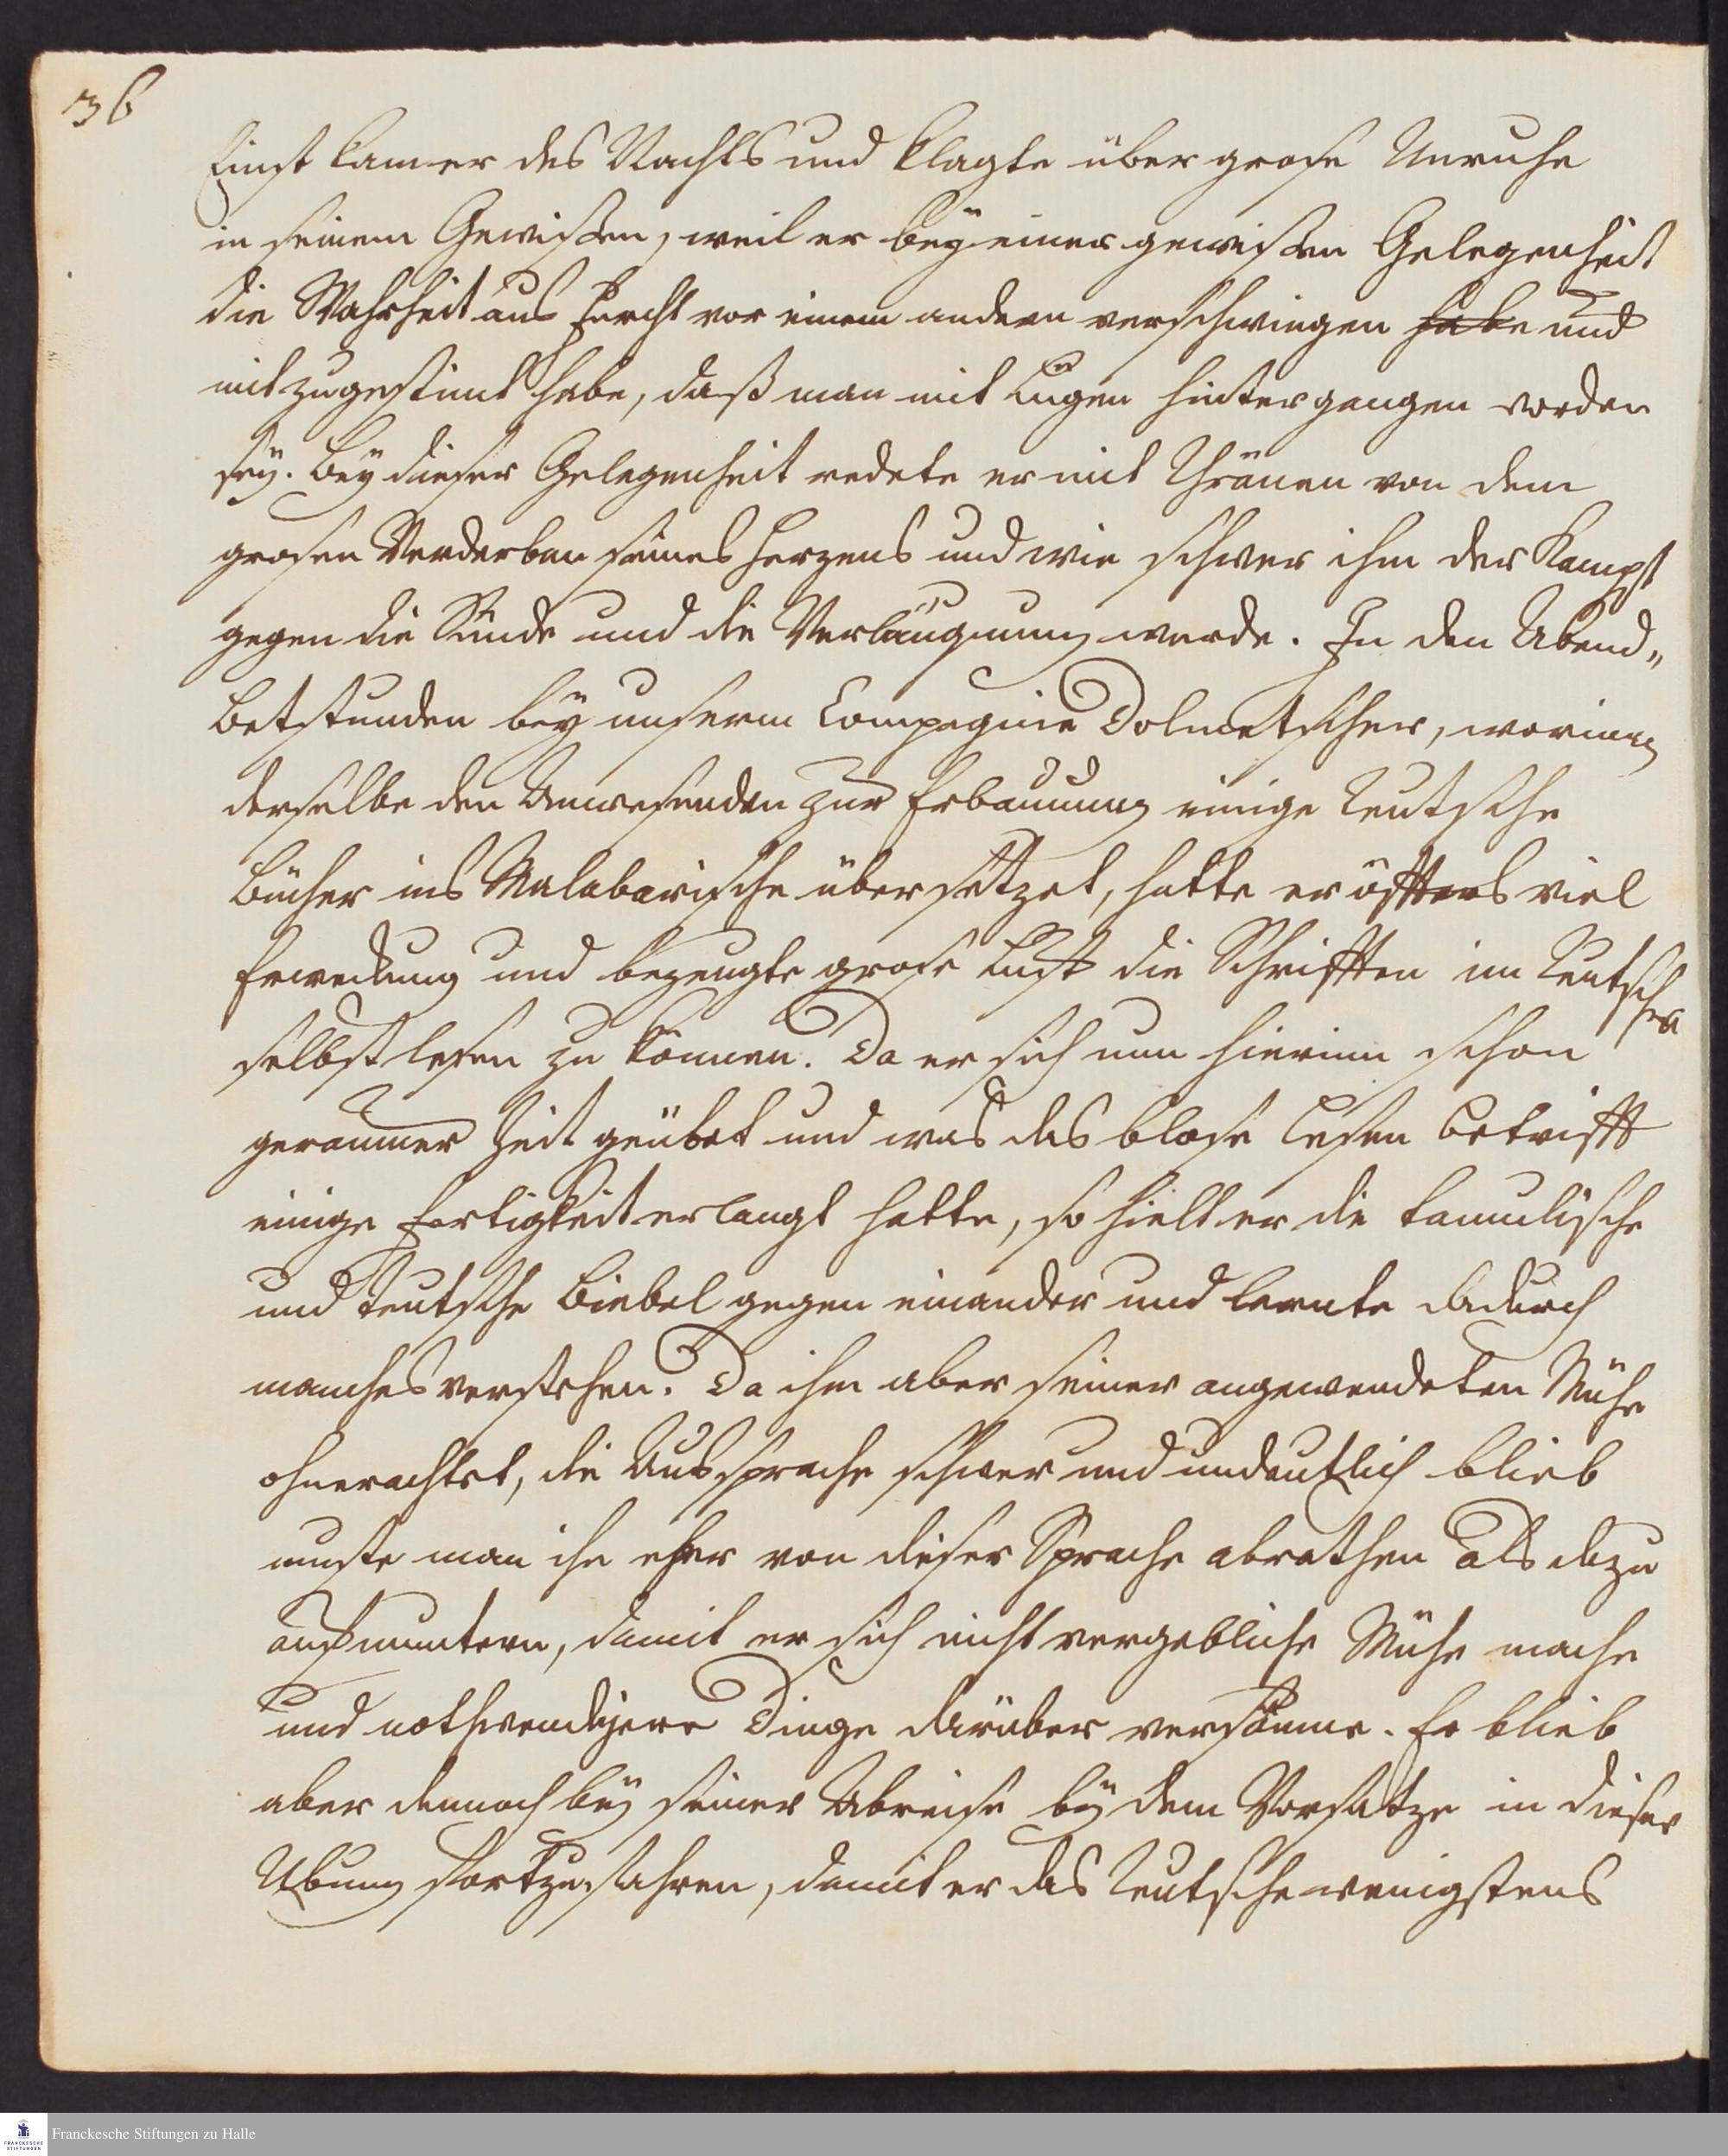 36
Einst kam er des Nachts und klagte über grose Unruhe
in seinem Gewißen, weil er bey einer gewißen Gelegenheit
die Wahrheit aus Furcht vor einem andern verschwiegen habe und
mit zugestimt habe, daß man mit Lügen hintergangen worden
sey. Bey dieser Gelegenheit redete er mit Thränen von dem
grosen Verderben seines Herzens und wie schwer ihm der Kampf
gegen die Sünde und die Verläugnung werde. In den Abend„
betstunden bey unserm Compagnie Dolmetscher, worinn
derselbe den Anwesenden zur Erbauung einige Teutsche
Bücher ins Malabarische übersetzet, hatte er öffters viel
Erweckung und bezeugte grose Lust die Schrifften im Teutschen
selbst lesen zu können. Da er sich nun hierinn schon
geraumer Zeit geübet und was das blose Lesen betrifft
einige Fertigkeit erlangt hatte, so hielt er die tamulische
und teutsche Biebel gegen einander und lernte dadurch
manches verstehen. Da ihm aber seiner angewendeten Mühe
ohnerachtet, die Aussprache schwer und undeutlich blieb
muste man ihn eher von dieser Sprache abrathen als dazu
aufmuntern, damit er sich nicht vergebliche Mühe mache
und nothwendigere Dinge darüber versäume. Er blieb
aber dennoch bey seiner Abreise bey dem Vorsatze in dieser
Übung fortzufahren, damit er das Teutsche wenigstens
Franckesche Stiftungen zu Halle
FRANCKESCHE
STIFTUNGEN